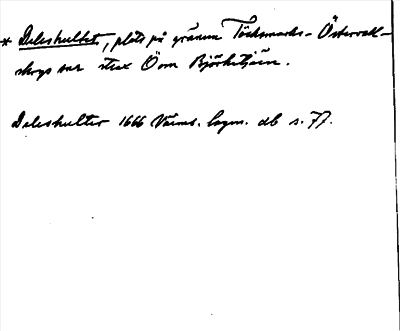 * Deleskultet, plats på gränsen Töcksmarks- Östervall-
skogs snr strax Ö om Björketjärn.
Deleskulter 1666 Värml. lagm. db s. 77.